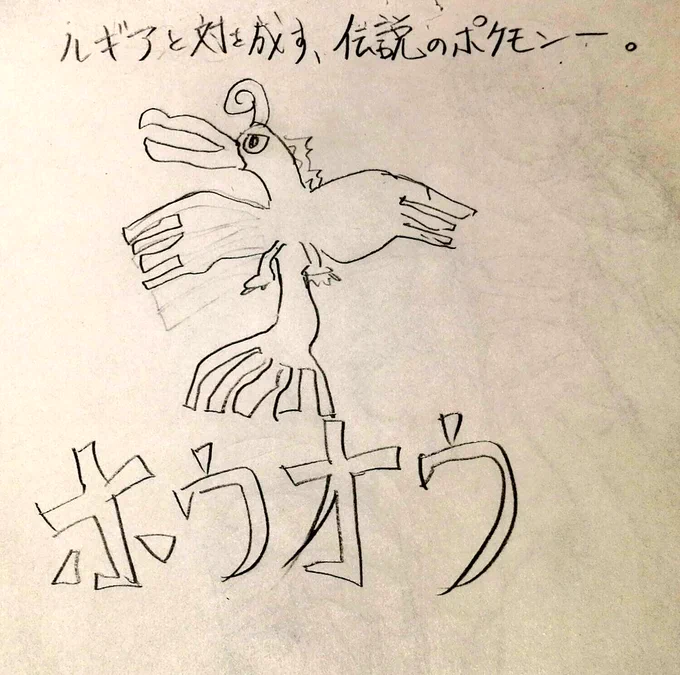 ルギアと対を成す、伝説のポケモンー。
ホウオウ